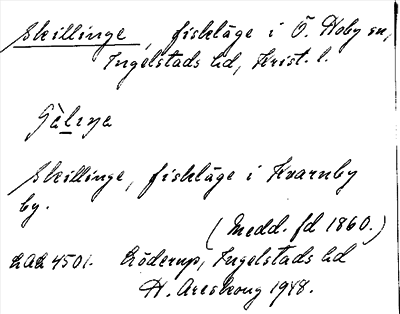 Skillinge, fiskläge i Ö. Hoby sn,
Ingelstads hd, Krist. l.
Skillinge, fiskläge i Kvarnby
by.
(Medd. fd 1860.)
LAL 4501. Löderup, Ingelstads hd
H. Areskoug 1948.